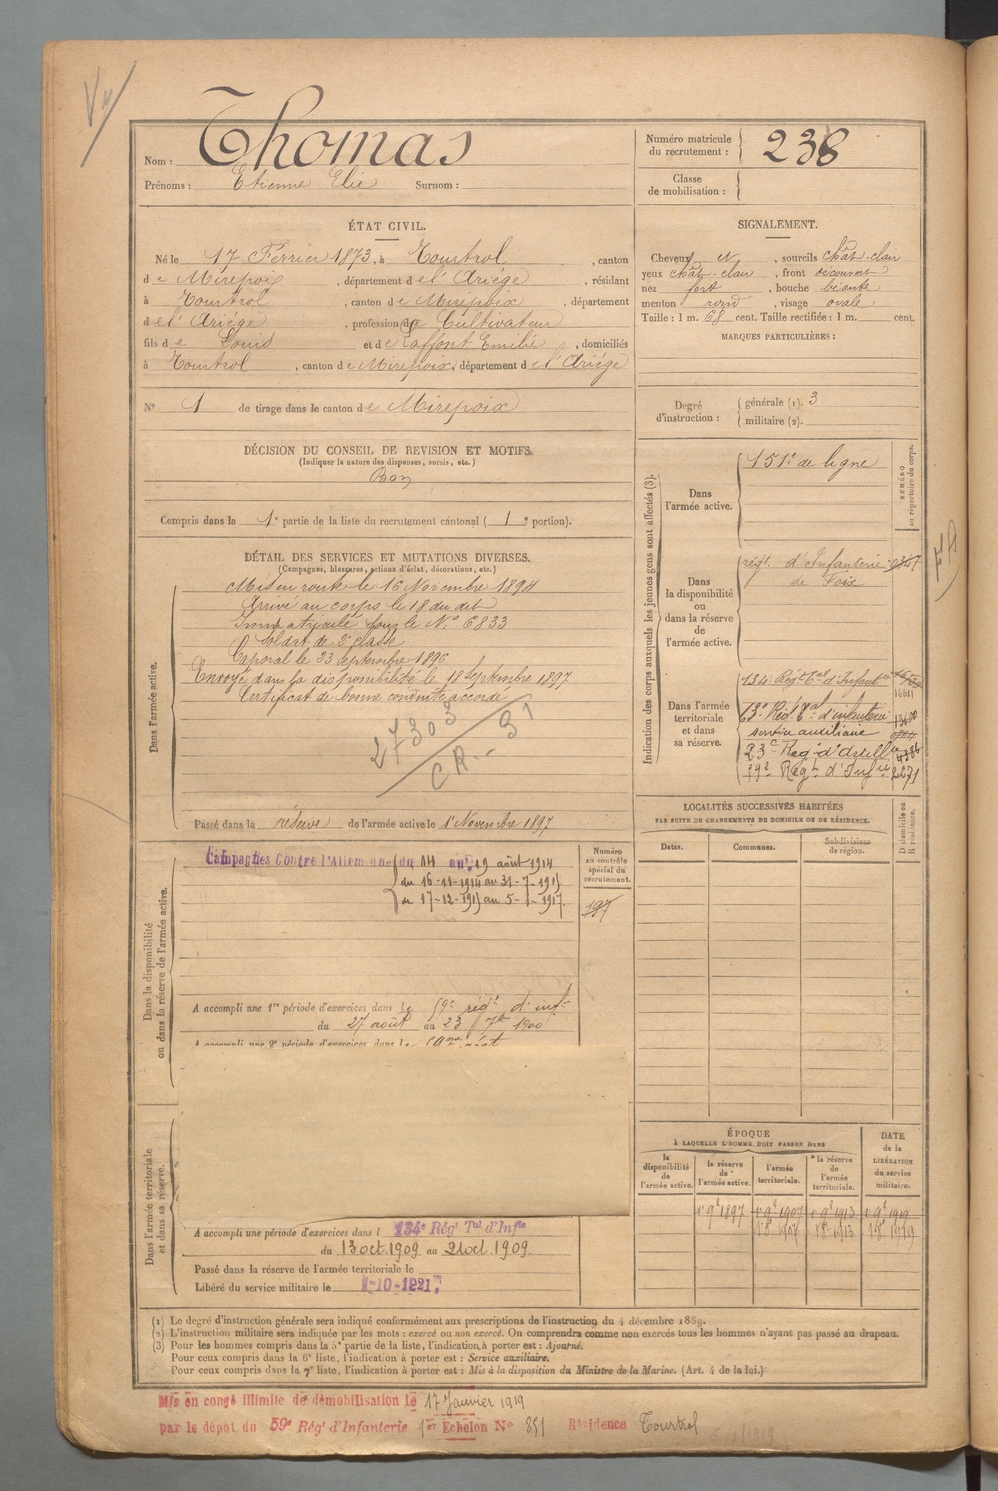 Nom : Thomas
Prénoms : Etienne Elie Surnom :
Numéro matricule du recrutement : 238
Classe de mobilisation :
ÉTAT CIVIL.
Né le 17 Février 1873, à Tourtrol, canton
de Mirepoix, département de l'Ariége, résidant
à Tourtrol, canton de Mirepoix, département
de l'Ariége, profession de Cultivateur
fils de Louis et de Laffont Emilie, domiciliés
à Tourtrol, canton de Mirepoix, département de l'Ariége
N° 1 de tirage dans le canton de Mirepoix
DÉCISION DU CONSEIL DE REVISION ET MOTIFS.
(Indiquer la nature des dispenses, sursis, etc.)
Bon
Compris dans la 1e partie de la liste du recrutement cantonal (1e portion).
SIGNALEMENT.
Cheveux N, sourcils chât-clair
yeux chât-clair, front découvert
nez fort, bouche béante
menton rond, visage ovale
Taille : 1 m. 68 cent. Taille rectifiée : 1 m. cent.
MARQUES PARTICULIÈRES :
Degré d'instruction : générale (1). 3
militaire (2).
DÉTAIL DES SERVICES ET MUTATIONS DIVERSES.
(Campagnes, blessures, actions d'éclat, décorations, etc.)
Dans l'armée active.
Mis en route le 16 Novembre 1894
Arrivé au corps le 18 du dit
Immatriculé sous le N° 6833
Soldat de 2e classe
Caporal le 23 septembre 1896
Envoyé dans la disponibilité le 18 Septembre 1897
Certificat de bonne conduite accordé
27303
CR. - 31
Passé dans la réserve de l'armée active le 1r Novembre 1897
Indication des corps auxquels les jeunes gens sont affectés (3).
NUMÉRO au répertoire du corps.
Dans l'armée active.
151e de ligne
Dans la disponibilité ou dans la réserve de l'armée active.
régt. d'Infanterie
de Foix
Dans l'armée territoriale et dans sa réserve.
134 Régt Tal d'Infanie
13e Régt Tal d'infanterie
service auxiliaire
23e Régt d'Artillie
59e Régt d'Infie 2271
LOCALITÉS SUCCESSIVES HABITÉES
PAR SUITE DE CHANGEMENTS DE DOMICILE OU DE RÉSIDENCE.
Dates. Communes. Subdivisions de région. D domicile ou R résidence.
Dans la disponibilité ou dans la réserve de l'armée active.
Campagnes Contre l'Allemagne du 14 au 19 août 1914
du 16-11-1914 au 31-7-1915
du 17-12-1915 au 5-1-1917.
Numéro au contrôle spécial du recrutement.
197
A accompli une 1re période d'exercices dans le 59e régt d'inf
du 27 août au 23 7bre 1900
A accompli une 2e période d'exercices dans le 59me régt
Dans l'armée territoriale et dans sa réserve.
A accompli une période d'exercices dans l 134e Régt Tal d'Infie
du 13 oct. 1909 au 21 oct. 1909
Passé dans la réserve de l'armée territoriale le
Libéré du service militaire le 1-10-1921
ÉPOQUE
À LAQUELLE L'HOMME DOIT PASSER DANS
la disponibilité de l'armée active. la réserve de l'armée active. l'armée territoriale. la réserve de l'armée territoriale.
DATE de la LIBÉRATION du service militaire.
1r 9e 1897 1r 9e 1907 1r 9e 1913 1r 9e 1919
1r 8e 1907 1r 8e 1913 1r 8e 1919
(1) Le degré d'instruction générale sera indiqué conformément aux prescriptions de l'instruction du 4 décembre 1889.
(2) L'instruction militaire sera indiquée par les mots : exercé ou non exercé. On comprendra comme non exercés tous les hommes n'ayant pas passé au drapeau.
(3) Pour les hommes compris dans la 5e partie de la liste, l'indication à porter est : Ajourné.
Pour ceux compris dans la 6e liste, l'indication à porter est : Service auxiliaire.
Pour ceux compris dans la 7e liste, l'indication à porter est : Mis à la disposition du Ministre de la Marine. (Art. 4 de la loi.)
Mis en congé illimité de démobilisation le 17 Janvier 1919
par le dépôt du 59e Régt d'Infanterie 1er Echelon N° 851 Résidence Tourtrol